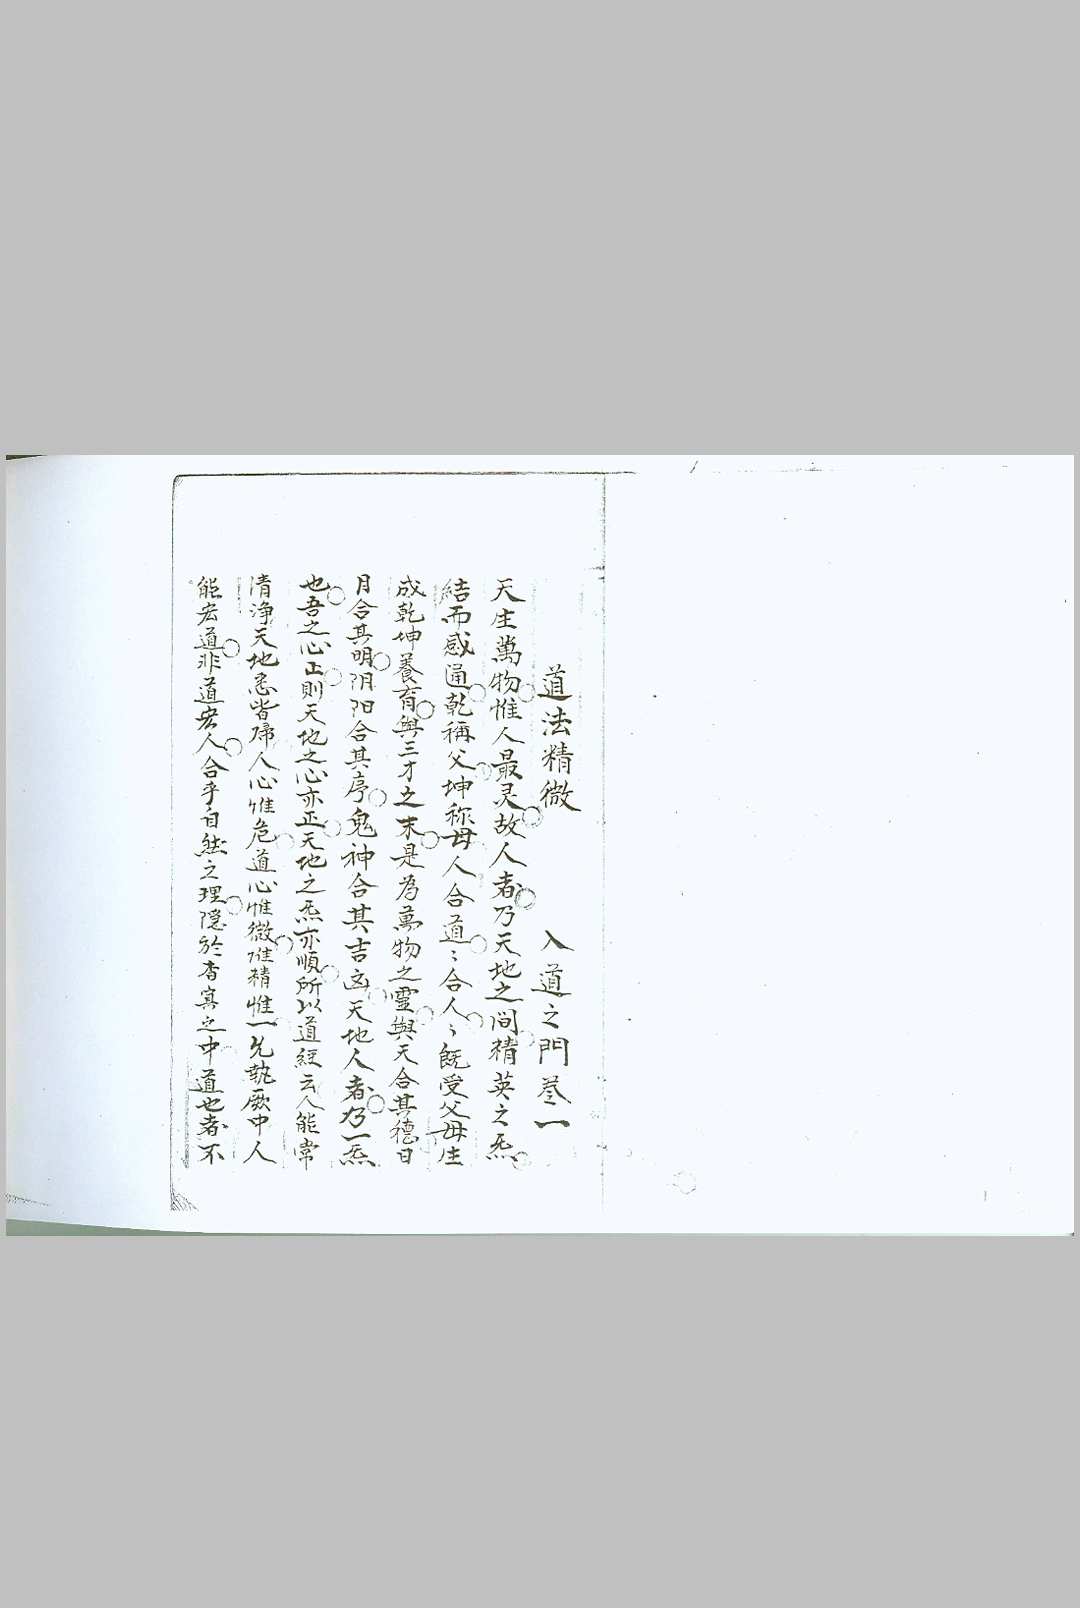 道法精微　入道之門叄一
天生萬物惟人最灵故人者乃天地之间精英之炁
結而感通乾稱父坤称母人合道〻合人〻既受父母生
成乾坤養育與三才之末是為萬物之靈與天合其德日
月合其明阴阳合其序鬼神合其吉凶天地人者乃一炁
也吾之心正則天地之心亦正天地之炁亦順所以道經云人能常
清淨天地悉皆歸人心惟危道心惟微惟精惟一允執厥中人
能宏道非道宏人合乎自然之理隐於杳冥之中道也者不